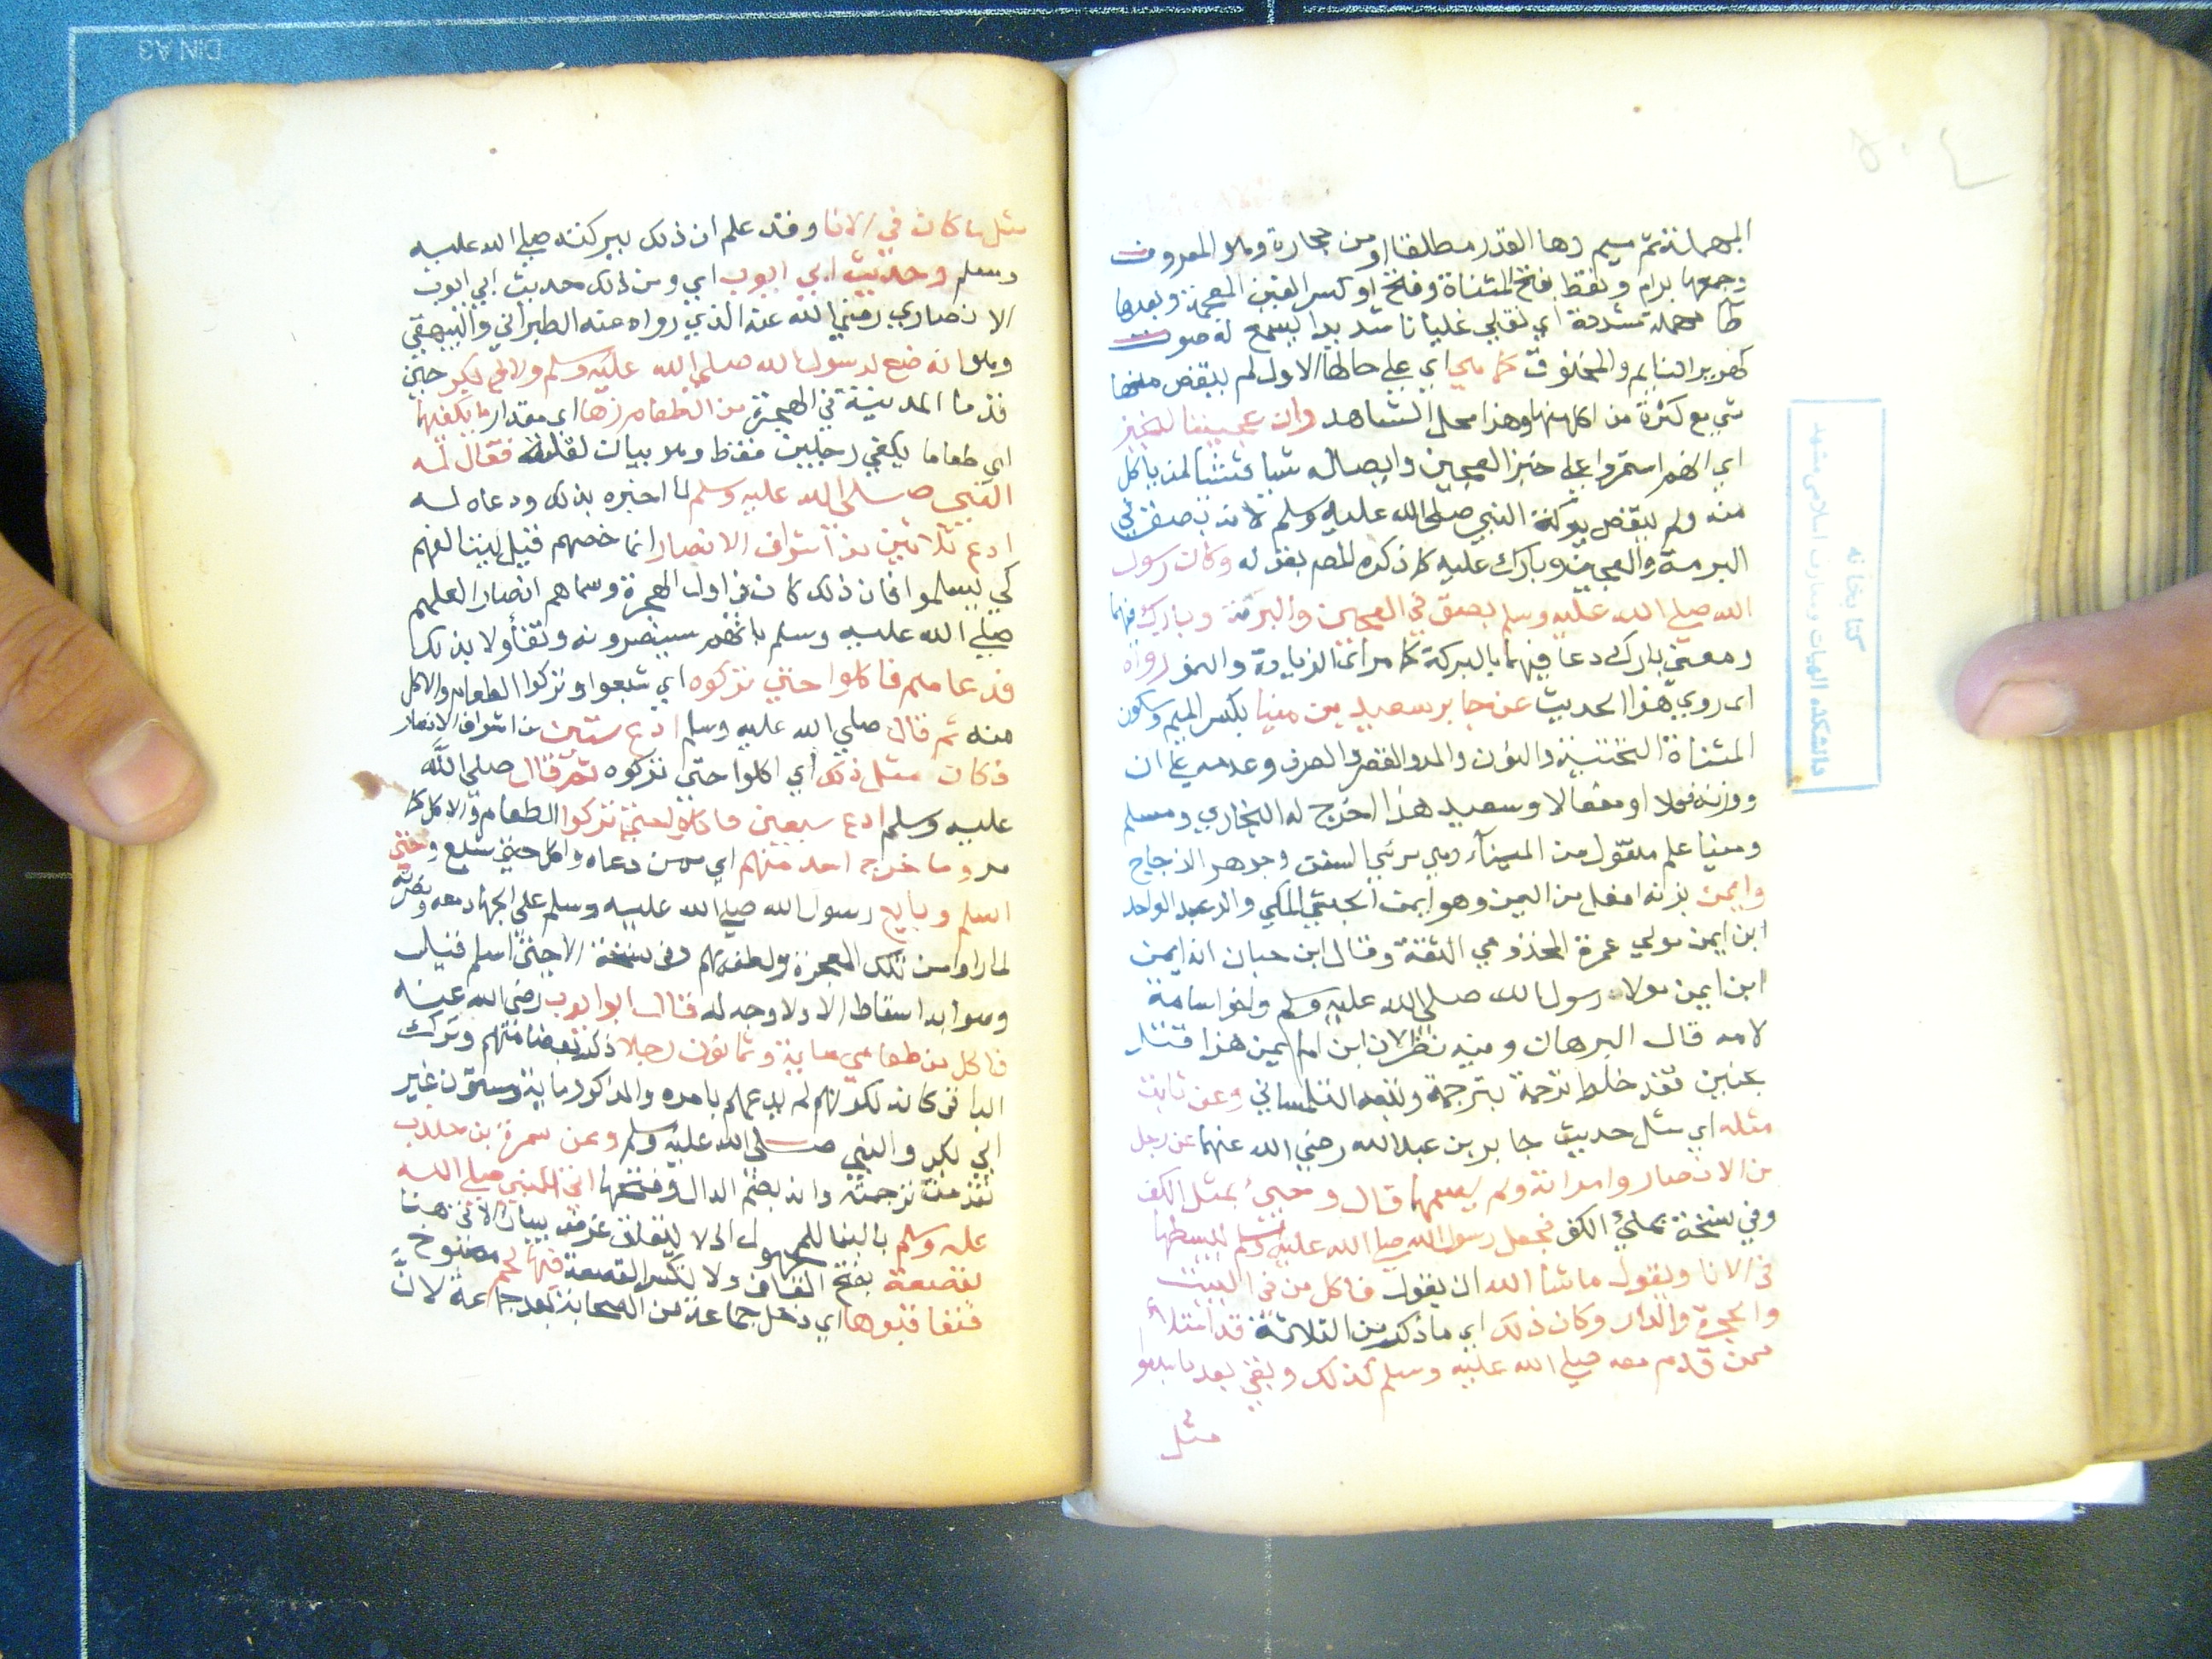 المهملة ثم ميم وها القدر مطلقا او من حجارة وهو المعروف
وجمعها برام وتغط بفتح المثناة وفتح او كسر الغين المعجمة وبعدها
طا مهملة مشددة اي تغلي غليانا شديدا يسمع له صوت
كهرير النايم والمخنوق كما هي اي على حالها الاول لم ينقص منها
شي مع كثرة من اكل منها وهذا محل الشاهد وان عجيننا ليخبز
اي انهم استمروا على خبز العجين وايصاله شيا فشيا لمن ياكل
منه ولم ينقص ببركة النبي صلى الله عليه وسلم لانه بصق في
البرمة والعجين وبارك عليه كما ذكره المص بقوله وكان رسول
الله صلى الله عليه وسلم بصق في العجين والبرمة وبارك فيهما
ومعنى بارك دعا فيهما بالبركة كما مر انما الزيادة والنمو رواه
اى روي هذا الحديث عن جابر سعيد بن مينا بكسر الميم وسكون
المثناة التحتية والنون والمد والقصر والصرف وعدمه على ان
ووزنه فعلا او مفعالا وسعيد هذا اخرج له البخاري ومسلم
ومينا علم منقول من الميناء وهي مرسي السفن وجوهر الزجاج
وايمن بزنة افعل من اليمن وهو ايمن الحبشي المكي والد عبد الواحد
ابن ايمن مولي عمرة المخزومي الثقة وقال ابن حبان انه ايمن
ابن ايمن مولاة رسول الله صلى الله عليه وسلم واخو اسامة
لامه قال البرهان وفيه نظر لان ابن ام ايمن هذا قتل
بحنين فقد خلط ترجمة بترجمة وتبعه التلمساني وعن ثابت
مثله اي مثل حديث جابر بن عبد الله رضي الله عنهما عن رجل
من الانصار وامراته ولم يسمهما قال وجيئ بمثل الكف
وفي نسخة بملئ الكف فجعل رسول الله صلى الله عليه وسلم يبسطها
في الانا ويقول ماشا الله ان يقول فاكل من في البيت
والحجرة والدار وكان ذلك اي ما ذكر من الثلاثة قد امتلا
ممن قدم معه صلى الله عليه وسلم لذلك وبقي بعد ما شبعوا
مثل
كتابخانه
دانشكده الهيات و معارف اسلامى مشهد
مثل ما كان في الانا وقد علم ان ذلك ببركته صلى الله عليه
وسلم وحديث ابي ايوب اي ومن ذلك حديث ابي ايوب
الانصاري رضي الله عنه الذي رواه عنه الطبراني والبيهقي
وهو انه صنع لرسول الله صلى الله عليه وسلم ولابي بكر حين
قدما المدينة في الهجرة من الطعام زها اي مقدار ما يكفيهما
اي طعاما يكفي رجلين فقط وهو بيان لقلته فقال له
النبي صلى الله عليه وسلم لما اخبره بذلك ودعاه له
ادع ثلاثين من اشراف الانصار انما خصهم قيل ليتالفهم
كي يسلموا فان ذلك كان في اول الهجرة وسماهم انصارا لعلمه
صلى الله عليه وسلم بانهم سينصرونه وتفاولا بذلك
فدعاهم فاكلوا حتي تركوه اي شبعوا وتركوا الطعام والاكل
منه ثم قال صلى الله عليه وسلم ادع ستين من اشراف الانصار
فكان مثل ذلك اي اكلوا حتى تركوه ثم قال صلى الله
عليه وسلم ادع سبعين فاكلوا حتي تركوا الطعام والاكل كما
مر وما خرج احد منهم اي ممن دعاه واكل حتي شبع وحتي
اسلم وبايع رسول الله صلى الله عليه وسلم علي الجهاد معه ونصرته
لما راوا من تلك المعجزة ولطفه بهم وفي نسخة الاحتى اسلم قيل
وصوابه اسقاط الا ولا وجه له قال ابو ايوب رضي الله عنه
فاكل من طعامي مماية وثمانون رجلا ذكر بعضا منهم وترك
الباقي كانه لكونهم لم يدعهم بامره والمذكور ماية وستون غير
ابي بكر والنبي صلى الله عليه وسلم وعن سمرة بن جندب
تقدمت ترجمته وانه بضم الدال وفتحها اتي النبي صلى الله
عليه وسلم بالبنا للمجهول اذ لا يتعلق غرض ببيان الاتي هنا
بقصعة بفتح القاف ولا تكسر القصعة فيها لحم مطبوخ
فتعاقبوها اي دخل جماعة من الصحابة بعد جماعة لان
DIN A3